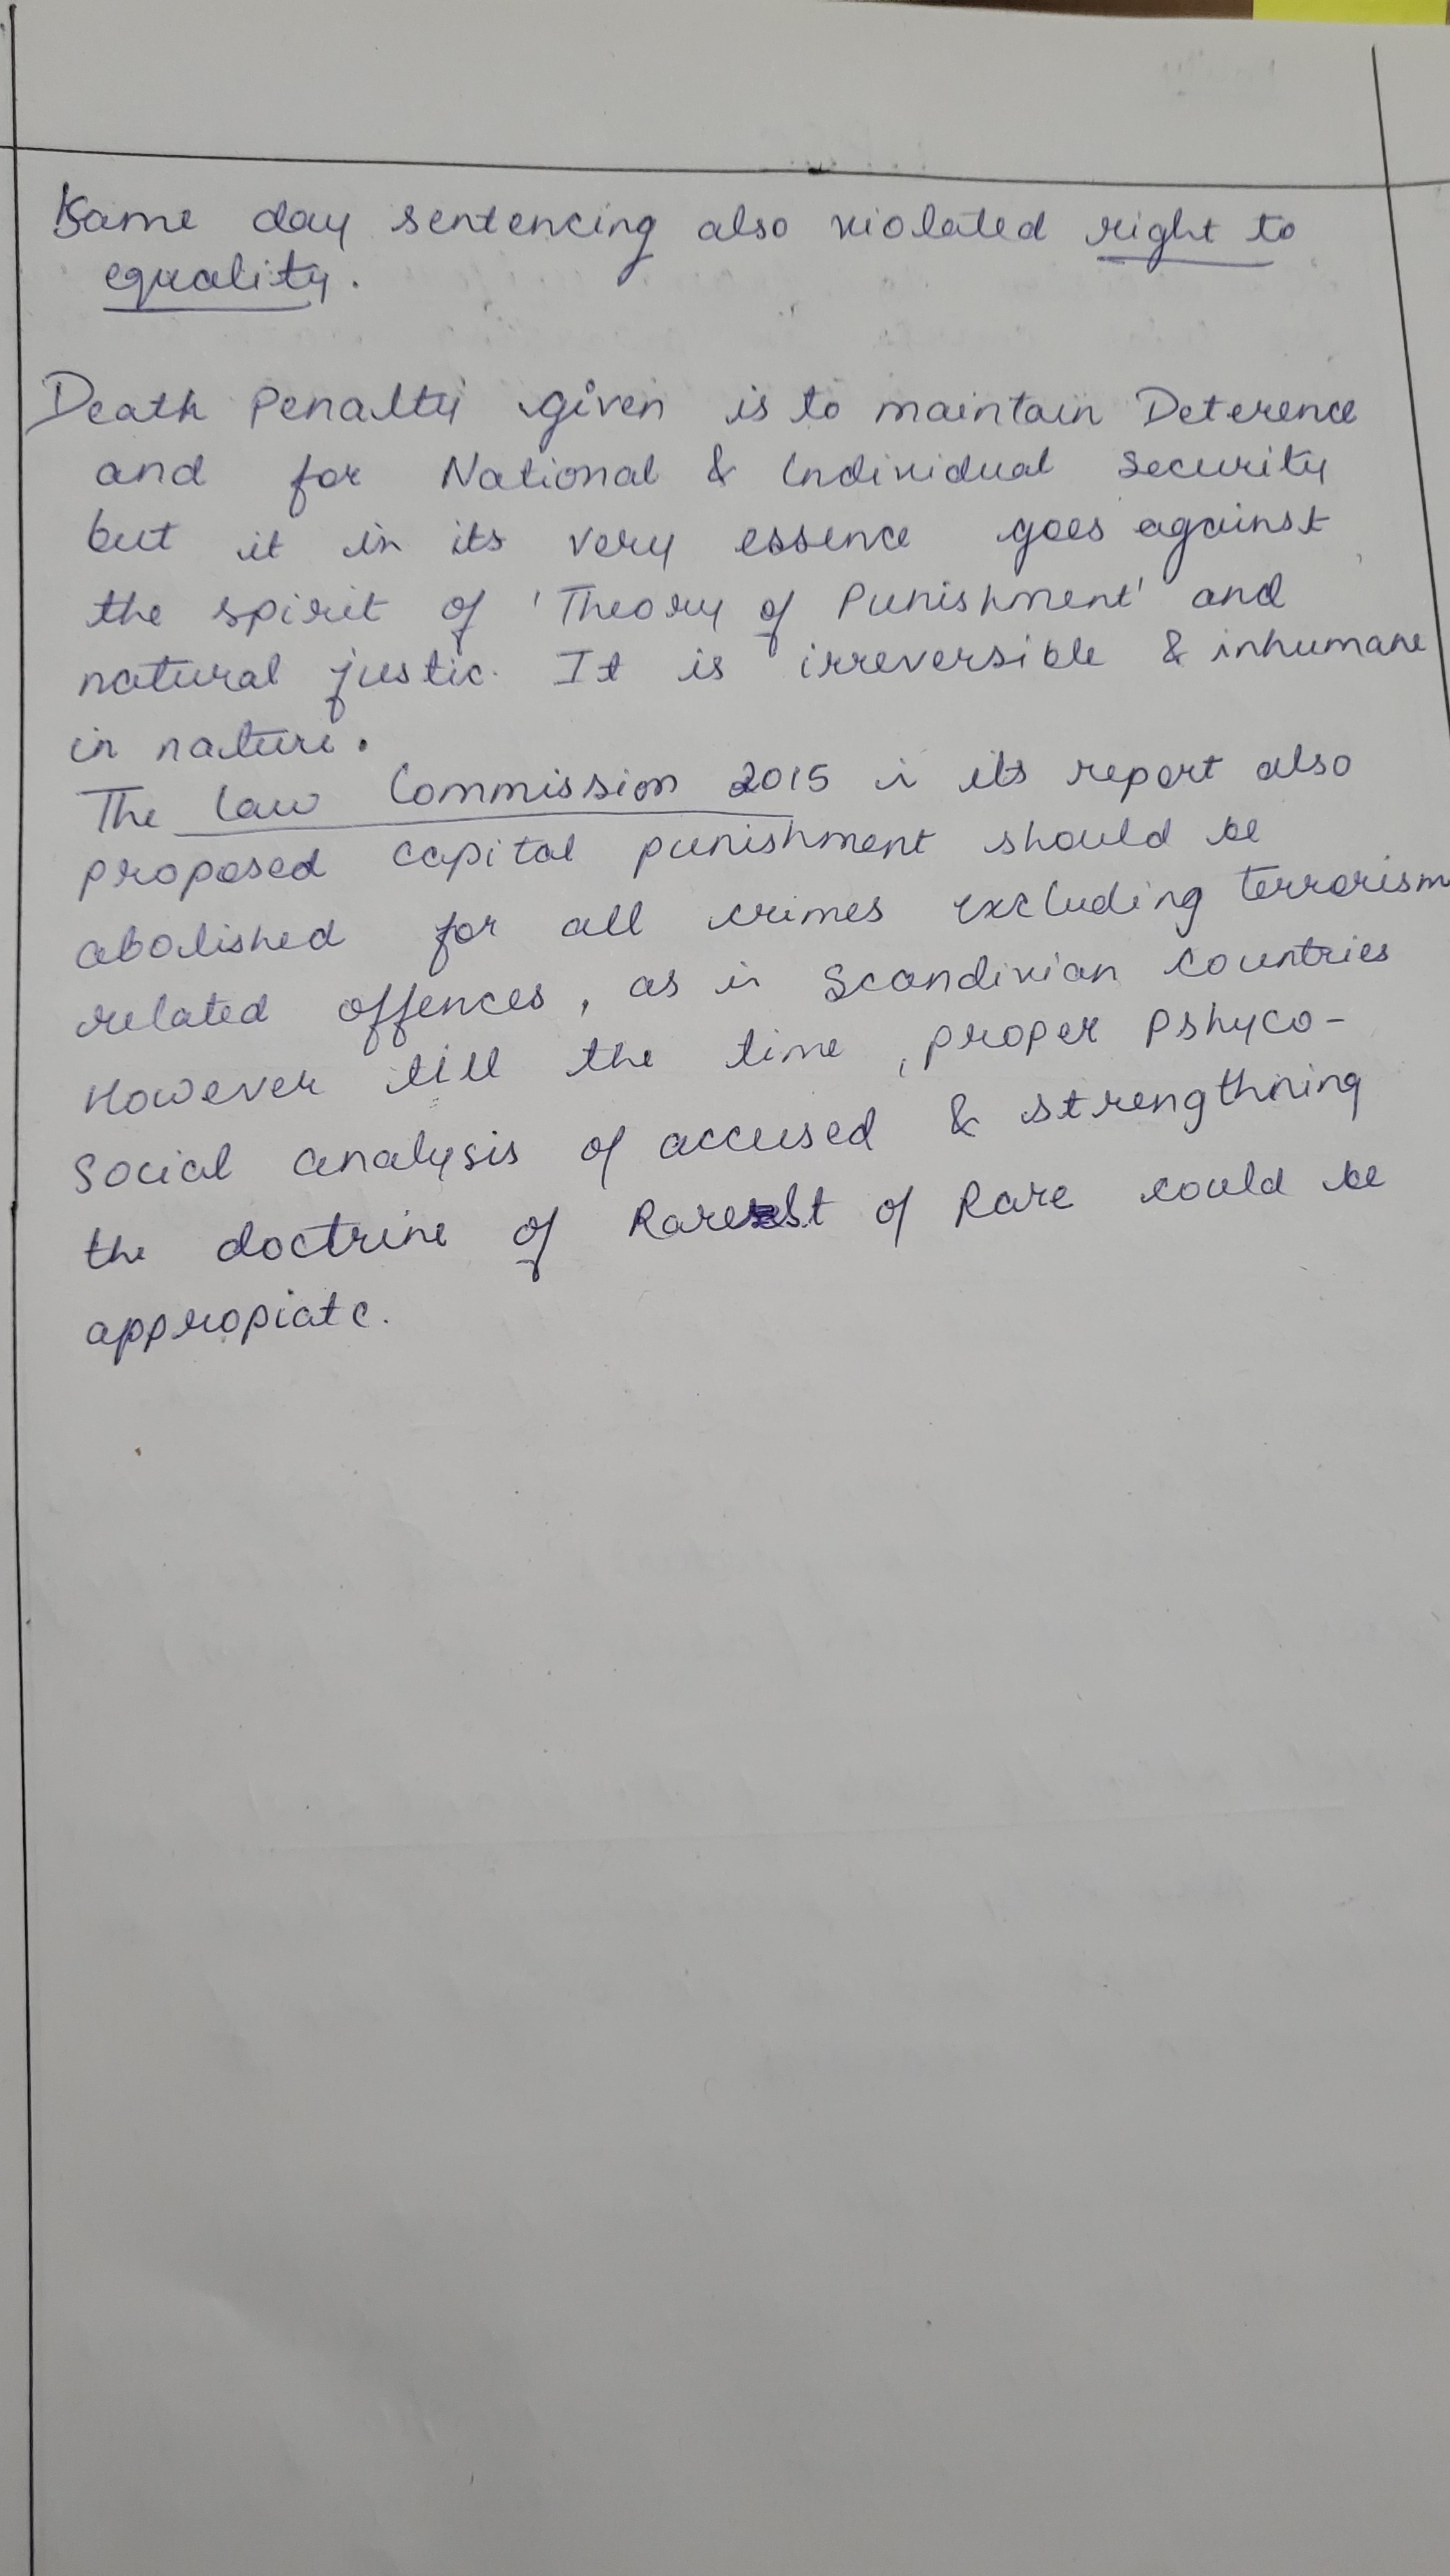 Same day sentencing also violated right to
equality.
Death Penalty given is to maintain Deterence
and for National & Individual Security
but it in its very essence goes against
the spirit of 'Theory of Punishment' and
natural justic. It is irreversible & inhumane
in nature.
The Law Commission 2015 in its report also
proposed capital punishment should be
abolished for all crimes excluding terrorism
related offences, as in Scandivian Countries
However till the time, proper Pshyco-
Social analysis of accused & strengthning
the doctrine of Rarest of Rare could be
appropiate.